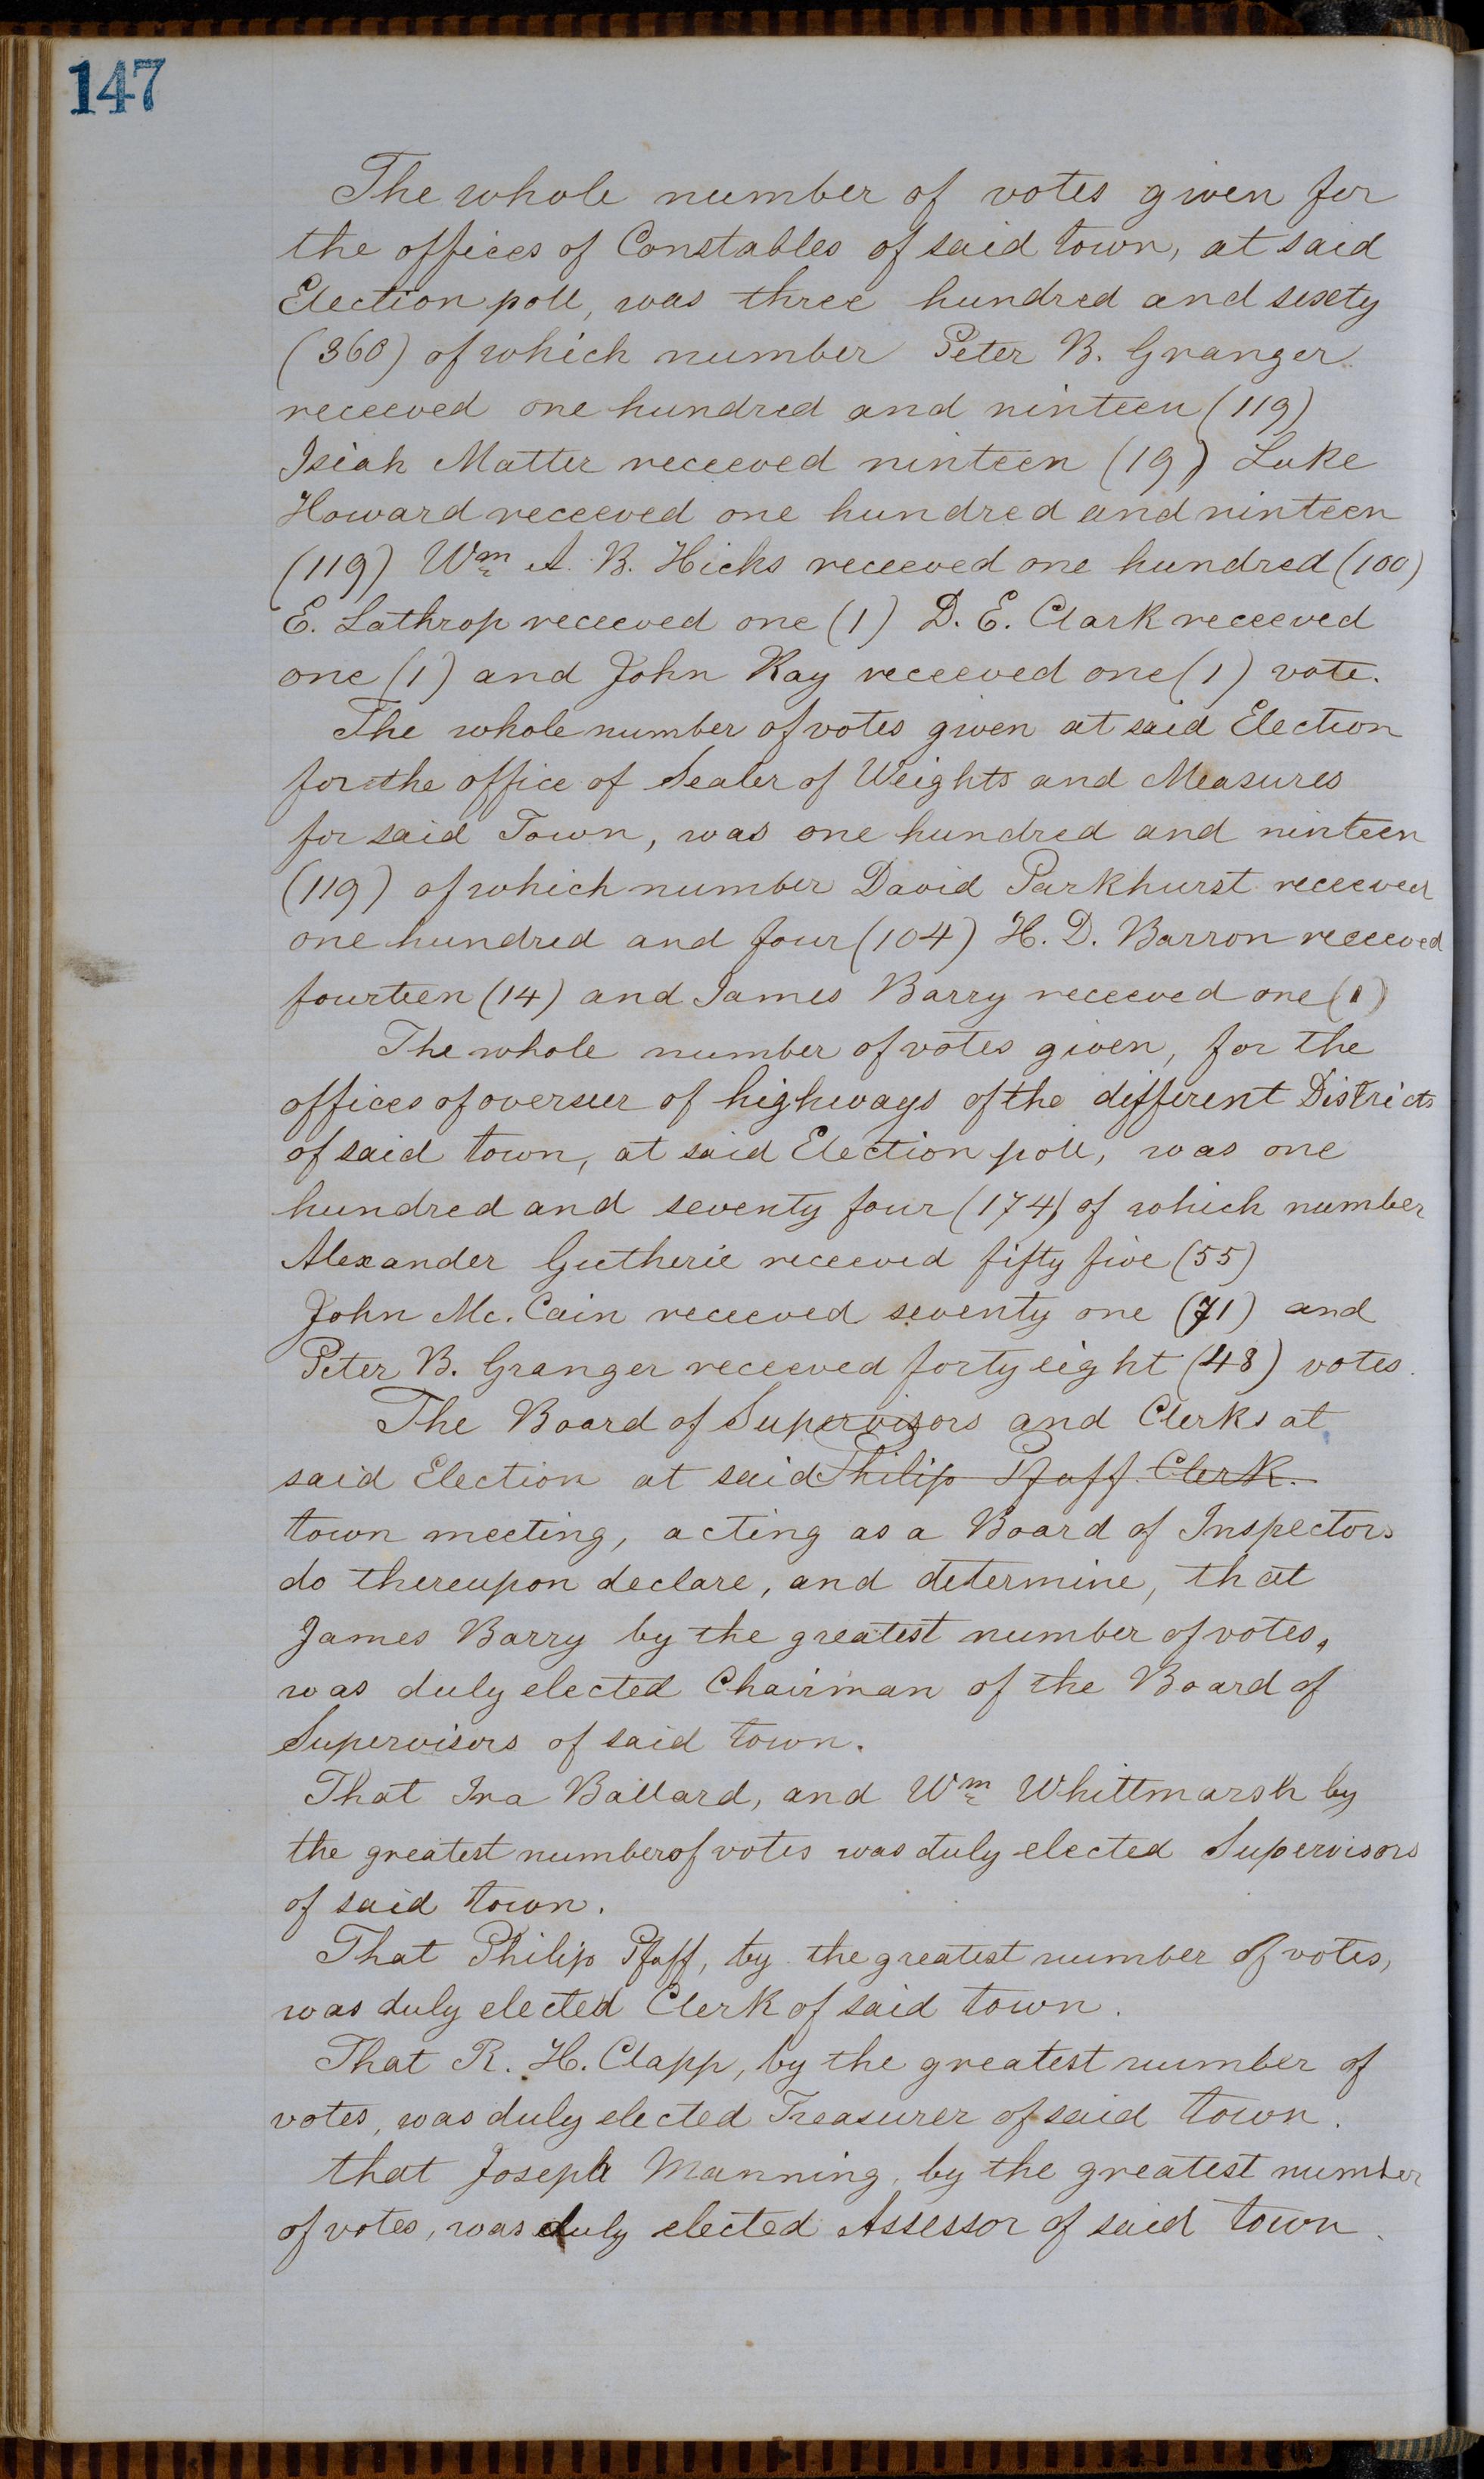 147
The whole number of votes given for
the offices of Constables of said town, at said
Election poll, was three hundred and sixty
(360) of which number Peter B. Granger
received one hundred and ninteen (119)
Isiah Matter received ninteen (19) Luke
Howard received one hundred and ninteen
(119) Wm A. B. Hicks received one hundred (100)
E. Lathrop received one (1) D. E. Clark received
one (1) and John Ray received one (1) vote.
The whole number of votes given at said Election
for the office of Sealer of Weights and Measures
for said Town, was one hundred and ninteen
(119) of which number David Parkhurst received
one hundred and four (104) H. D. Barron received
fourteen (14) and James Barry received one (1)
The whole number of votes given, for the
offices of overseer of highways of the different Districts
of said town, at said Election poll, was one
hundred and seventy four (174) of which number
Alexander Gutherie received fifty five (55)
John Mc. Cain received seventy one (71) and
Peter B. Granger received forty eight (48) votes.
The Board of Supervisors and Clerks at
said Election at said Philip Pfaff Clerk.
town meeting, acting as a Board of Inspectors
do thereupon declare, and determine, that
James Barry by the greatest number of votes,
was duly elected Chairman of the Board of
Supervisors of said town.
That Ira Ballard, and Wm Whittmarsh by
the greatest number of votes was duly elected Supervisors
of said town.
That Philip Pfaff, by the greatest number of votes,
was duly elected Clerk of said town.
That R. H. Clapp, by the greatest number of
votes, was duly elected Treasurer of said town.
that Joseph Manning, by the greatest number
of votes, was duly elected Assessor of said town.